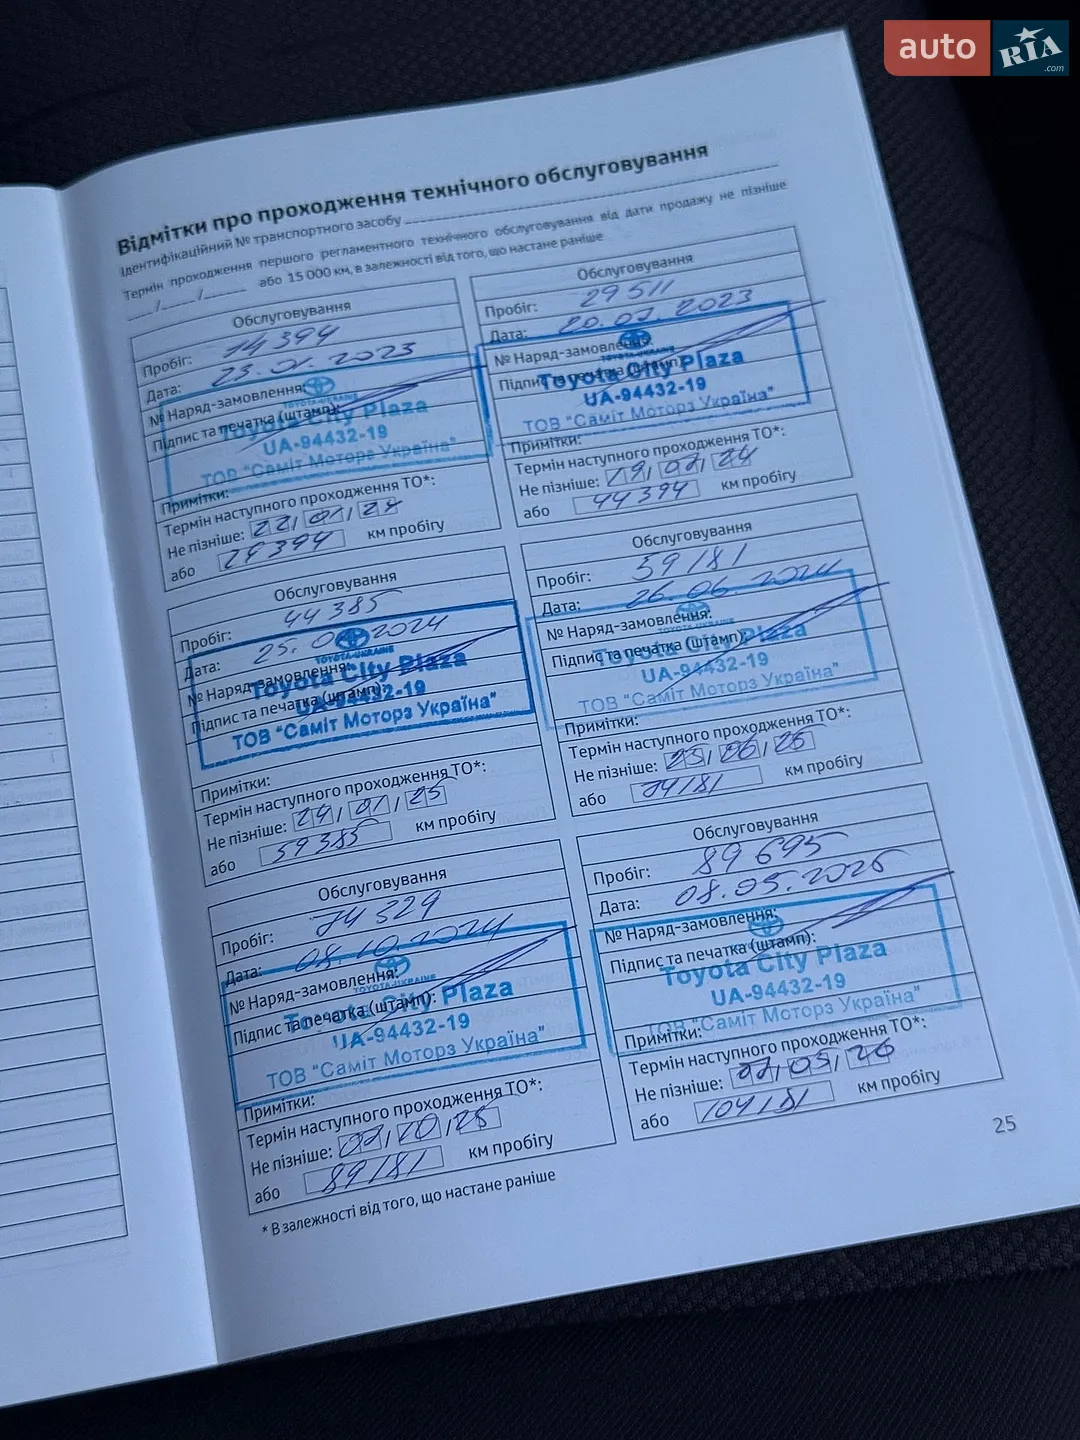 auto RIA .com
Відмітки про проходження технічного обслуговування
Ідентифікаційний № транспортного засобу
Термін проходження першого регламентного технічного обслуговування від дати продажу не пізніше
/ / або 15 000 км, в залежності від того, що настане раніше
Обслуговування
Пробіг: 14 394
Дата: 23.01.2023
№ Наряд-замовлення:
TOYOTA-UKRAINE
Підпис та печатка (штамп):
Toyota City Plaza
UA-94432-19
ТОВ "Саміт Моторз Україна"
Примітки:
Термін наступного проходження ТО*:
Не пізніше: 22/01/24
або 29394 км пробігу
Обслуговування
Пробіг: 29511
Дата: 20.07.2023
№ Наряд-замовлення:
TOYOTA-UKRAINE
Підпис та печатка (штамп):
Toyota City Plaza
UA-94432-19
ТОВ "Саміт Моторз Україна"
Примітки:
Термін наступного проходження ТО*:
Не пізніше: 19/07/24
або 44394 км пробігу
Обслуговування
Пробіг: 44 385
Дата: 25. 2024
№ Наряд-замовлення:
TOYOTA-UKRAINE
Toyota City Plaza
Підпис та печатка (штамп):
UA-94432-19
ТОВ "Саміт Моторз Україна"
Примітки:
Термін наступного проходження ТО*:
Не пізніше: 24/01/25
або 59385 км пробігу
Обслуговування
Пробіг: 59181
Дата: 26.06.2024
№ Наряд-замовлення:
TOYOTA-UKRAINE
Підпис та печатка (штамп):
Toyota City Plaza
UA-94432-19
ТОВ "Саміт Моторз Україна"
Примітки:
Термін наступного проходження ТО*:
Не пізніше: 25/06/25
або 74181 км пробігу
Обслуговування
Пробіг: 74 329
Дата: 08.10.2024
№ Наряд-замовлення:
TOYOTA-UKRAINE
Підпис та печатка (штамп):
Toyota City Plaza
UA-94432-19
ТОВ "Саміт Моторз Україна"
Примітки:
Термін наступного проходження ТО*:
Не пізніше: 07/10/25
або 89181 км пробігу
Обслуговування
Пробіг: 89 695
Дата: 08.05.2025
№ Наряд-замовлення:
Підпис та печатка (штамп):
Toyota City Plaza
UA-94432-19
ТОВ "Саміт Моторз Україна"
Примітки:
Термін наступного проходження ТО*:
Не пізніше: 07/05/26
або 104181 км пробігу
* В залежності від того, що настане раніше
25